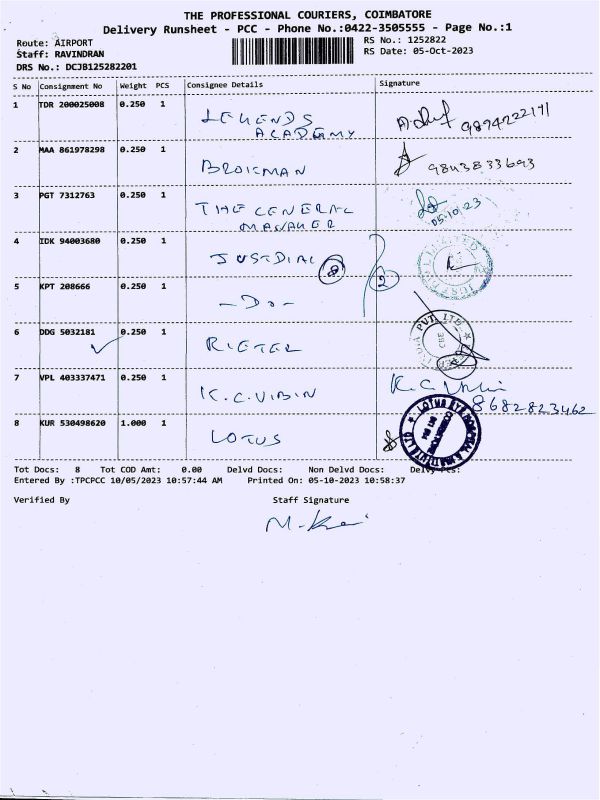 THE PROFESSIONAL COURIERS, COIMBATORE
Delivery Runsheet - PCC - Phone No.:0422-3505555 - Page No.:1
Route: AIRPORT
RS No.: 1252822
Staff: RAVINDRAN
RS Date: 05-Oct-2023
DRS No.: DCJB125282201
S No Consignment No Weight PCS Consignee Details Signature
1 TDR 200025008 0.250 1 LEGENDS ACADEMY 9894222171
2 MAA 861978298 0.250 1 9843833693
3 PGT 7312763 0.250 1 THE GENERAL MANAGER 05-10-23
4 IDK 94003680 0.250 1 JUSTDIAL 8 LIMITED
5 KPT 208666 0.250 1 -Do- 2
6 DDG 5032181 0.250 1 RIETER PVT. LTD. CBE
7 VPL 403337471 0.250 1 K.C.VIBIN 8682823462
8 KUR 530498620 1.000 1 LOTUS LOTUS EYE HOSPITAL
Tot Docs: 8 Tot COD Amt: 0.00 Delvd Docs: Non Delvd Docs: Delvy Pcs:
Entered By :TPCPCC 10/05/2023 10:57:44 AM Printed On: 05-10-2023 10:58:37
Verified By Staff Signature